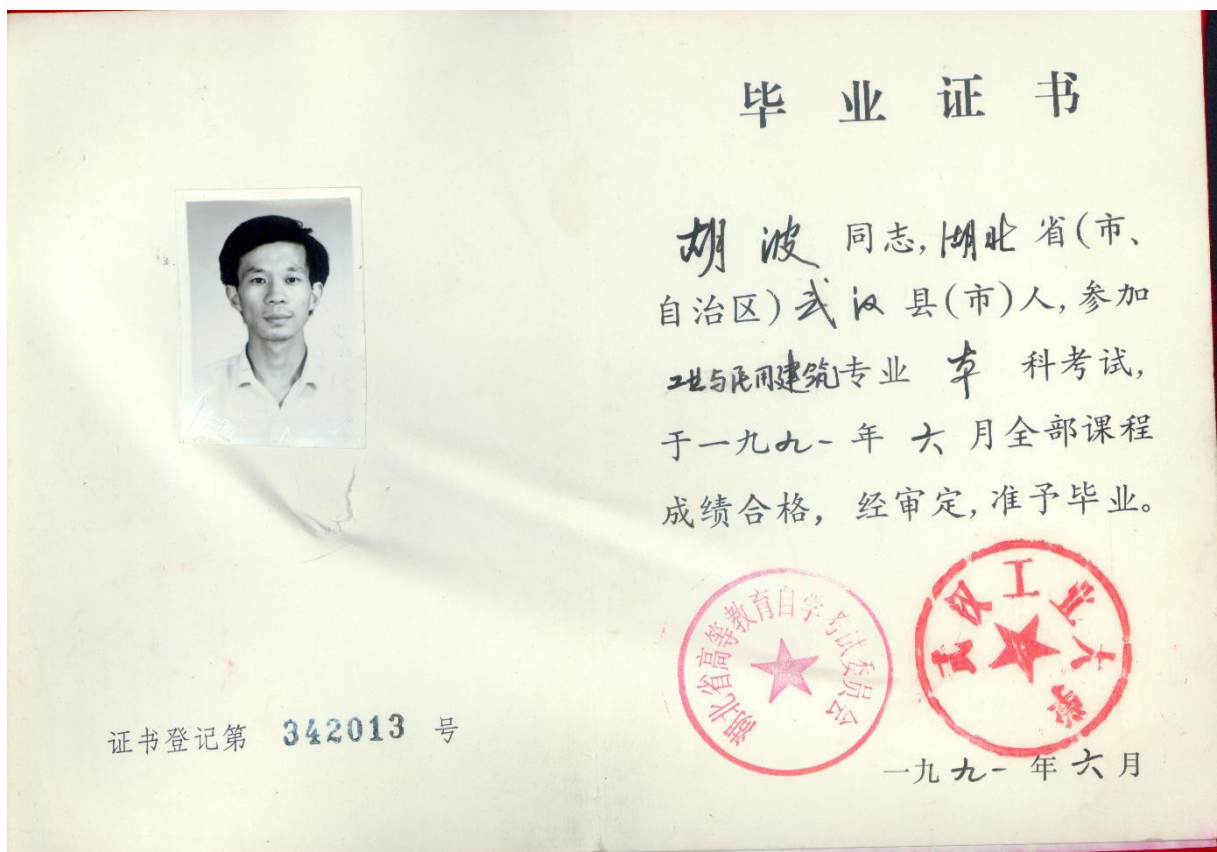 毕业证书
胡波同志，湖北省(市、
自治区)武汉县(市)人，参加
工业与民用建筑专业本科考试，
于一九九一年六月全部课程
成绩合格，经审定，准予毕业。
湖北省高等教育自学考试委员会
武汉工业大学
一九九一年六月
证书登记第 342013 号